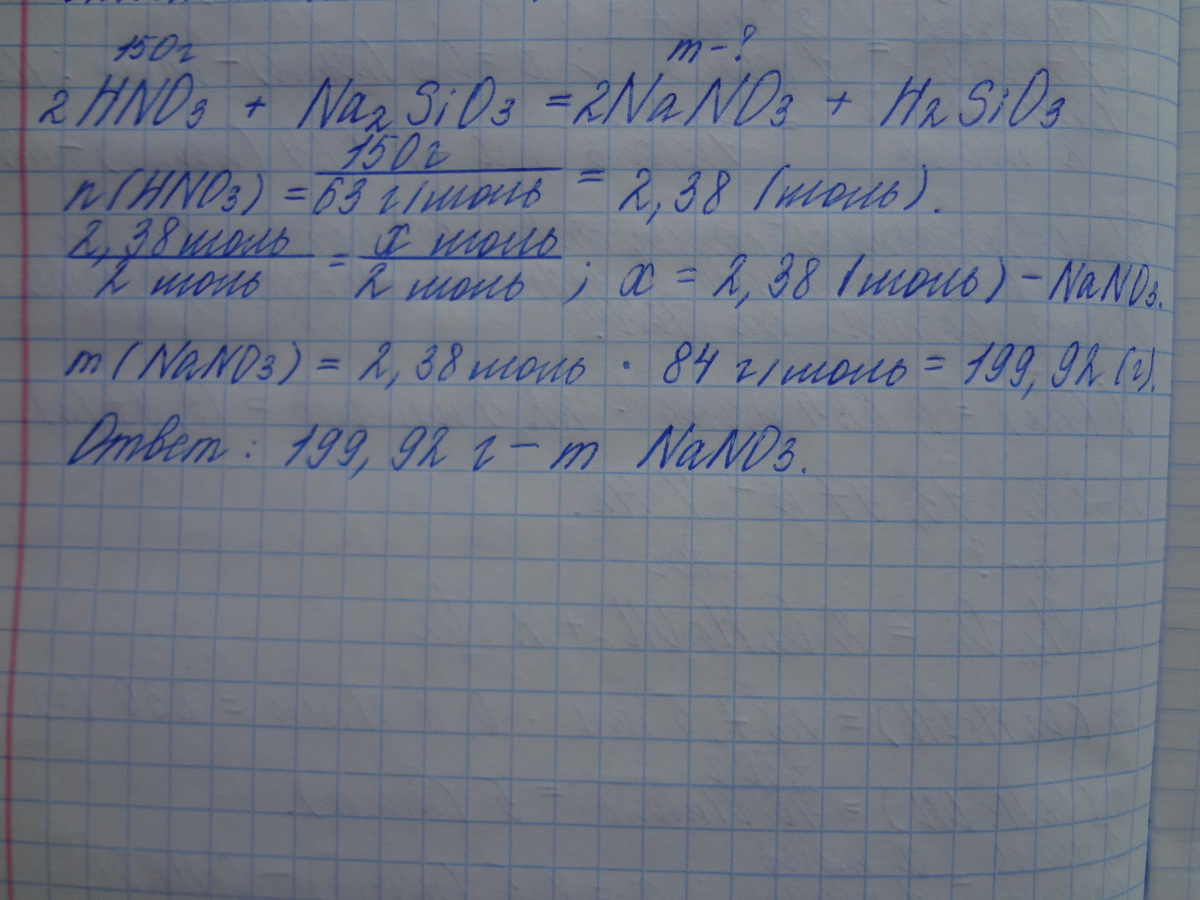 150г m-?
2HNO3 + Na2SiO3 = 2NaNO3 + H2SiO3
n(HNO3) = 150г / 63 г/моль = 2,38 (моль).
2,38 моль / 2 моль = x моль / 2 моль ; x = 2,38 (моль) - NaNO3.
m(NaNO3) = 2,38 моль · 84 г/моль = 199,92 (г).
Ответ: 199,92 г - m NaNO3.